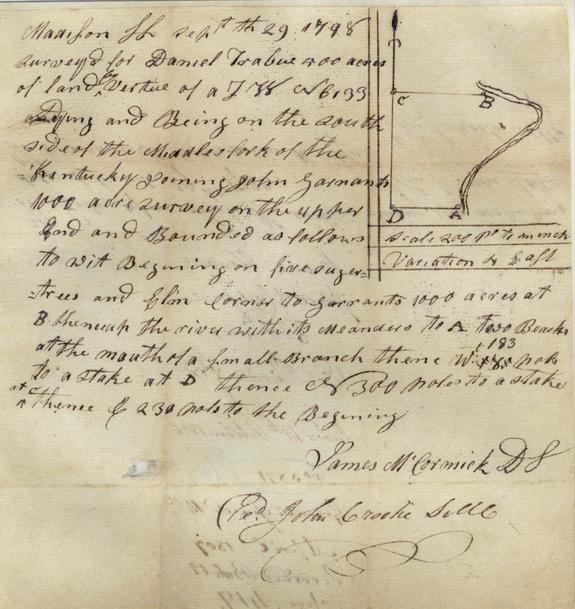 Madison Sct Sept th 29 1798
Surveyd for Daniel Trabue 400 acres
of land by Vertue of a T W No 633
Lying and Being on the South
side of the Middle fork of the
Kentucky Joining John Garrants
1000 acre survey on the upper
End and Bounded as follows
to wit Begining on five suger
trees and Elm Corner to Garrants 1000 acres at
B thence up the river with its meanders to A two Beaches
at the mouth of a small Branch thence W 183 pols
to a stake at D thence N 300 poles to a stake
at C thence E 230 pols to the Begining
James McCormick D S
John Crooke
C
B
D
A
scale 200 Ps to an inch
Variation 4 East